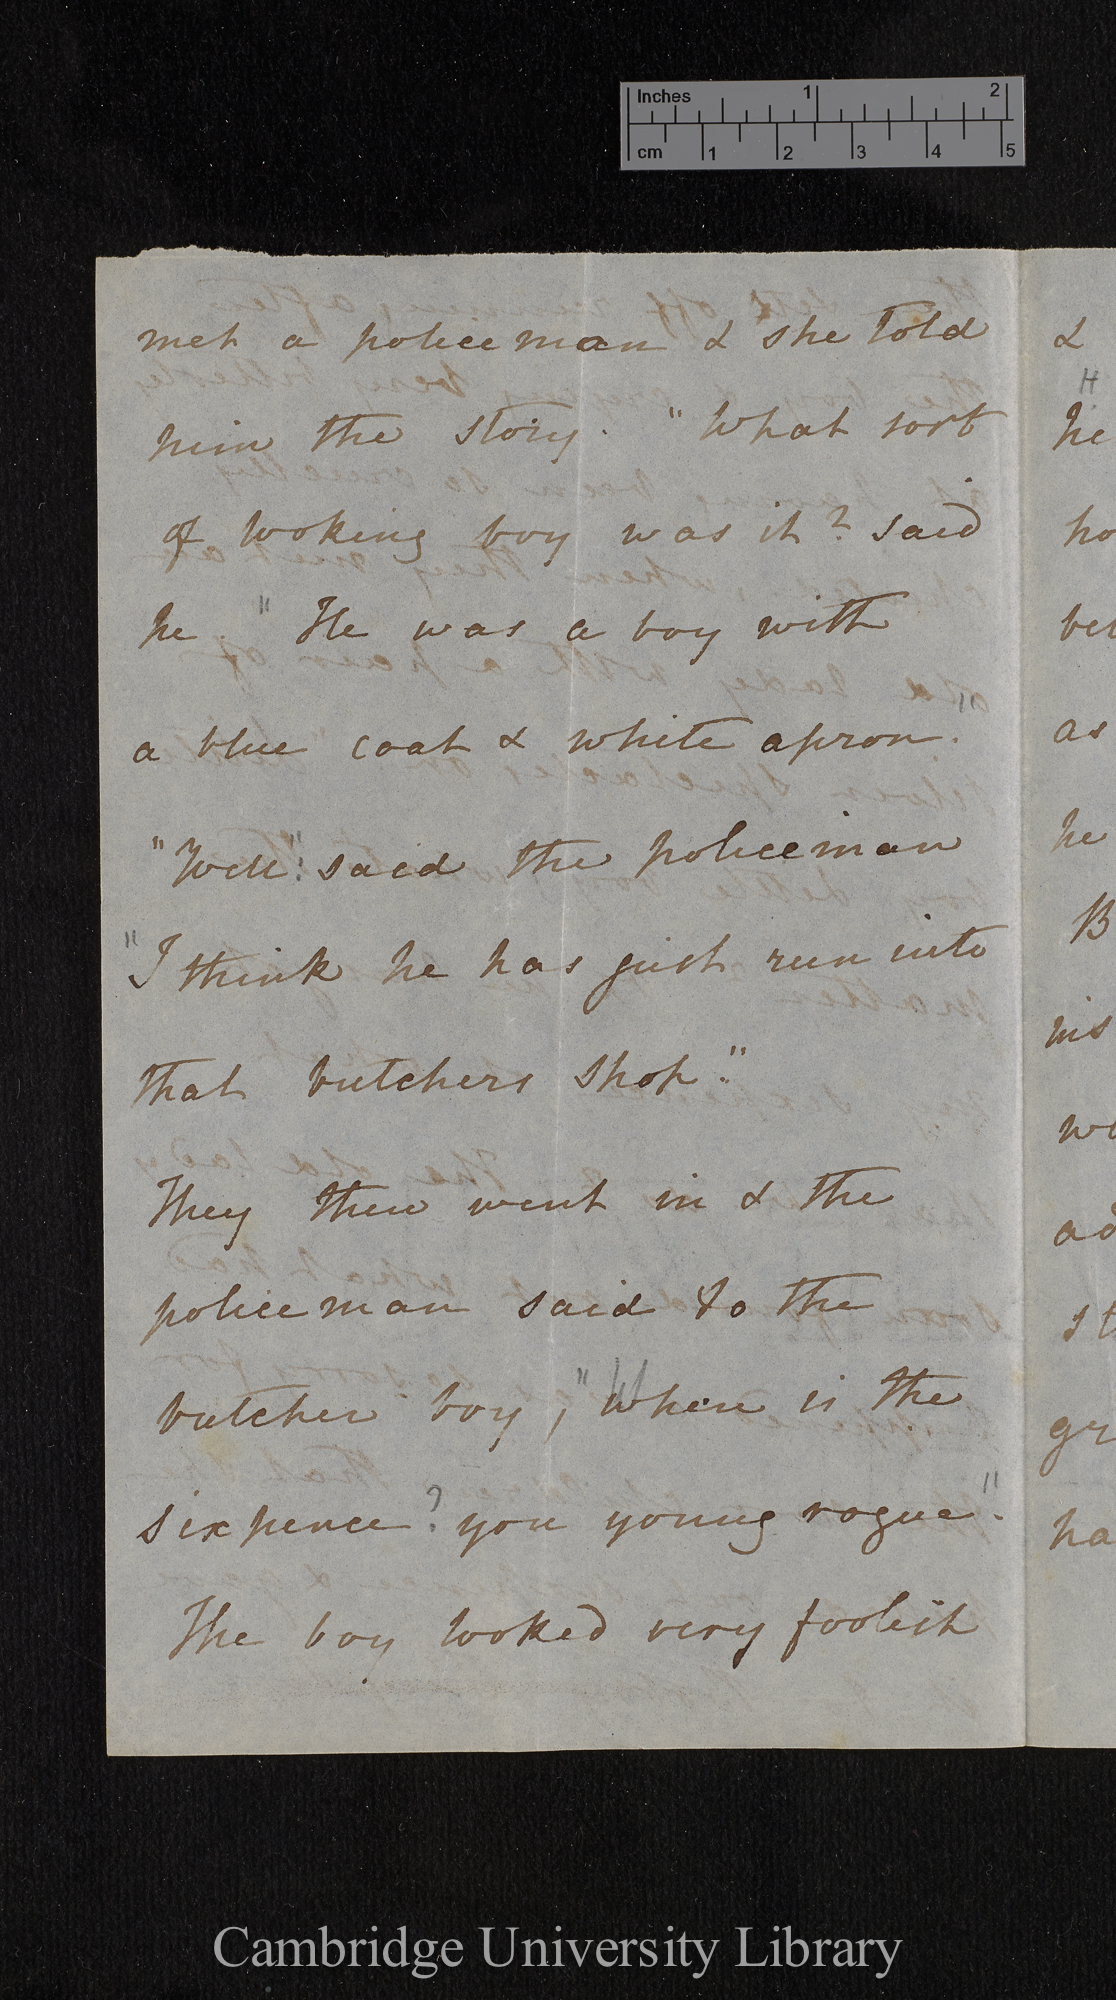 Inches 1 2
cm 1 2 3 4 5
met a policeman & she told
him the story. "What sort
of looking boy was it? said
he. "He was a boy with
a blue coat & white apron."
"Well" said the policeman
"I think he has just run into
that butchers shop."
They then went in & the
policeman said to the
butcher boy, "Where is the
sixpence? you young rogue".
The boy looked very foolish
&
he
ho
bet
as
he
B
his
st
gr
ha
Cambridge University Library